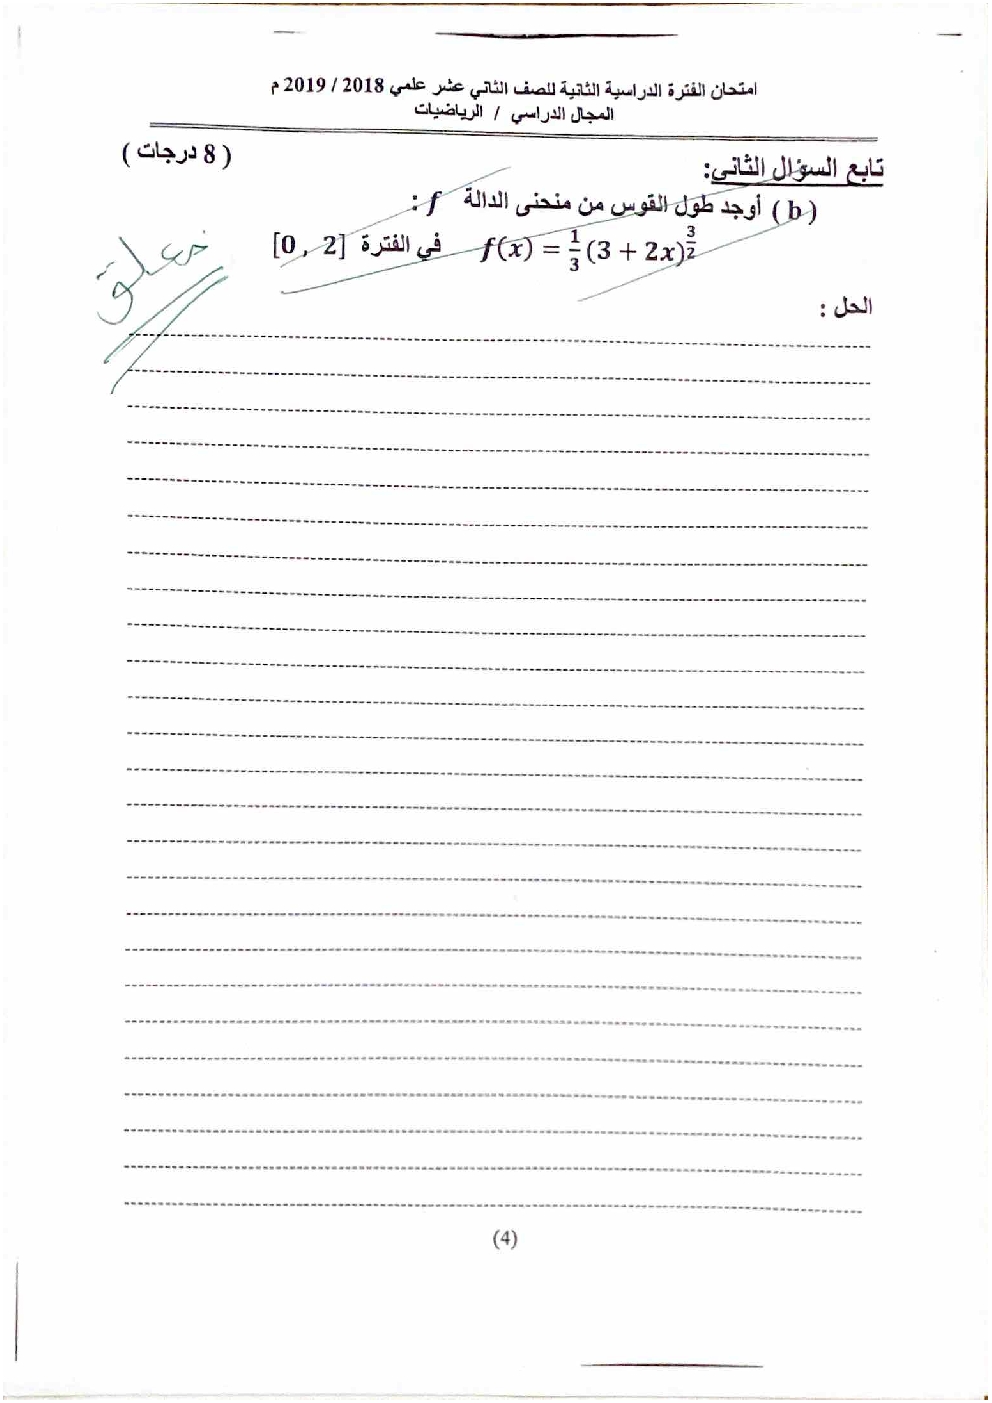 امتحان الفترة الدراسية الثانية للصف الثاني عشر علمي 2018 / 2019 م
المجال الدراسي / الرياضيات
تابع السؤال الثاني: ( 8 درجات )
( b ) أوجد طول القوس من منحنى الدالة f :
f(x) = \frac{1}{3}(3 + 2x)^{\frac{3}{2}} في الفترة [0 , 2]
الحل :
(4)